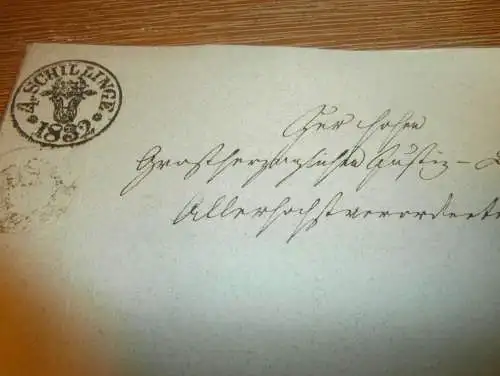 4. SCHILLINGE
1832
Der hohen
Grosherzoglichen Justiz-
Allerhöchstverordnete